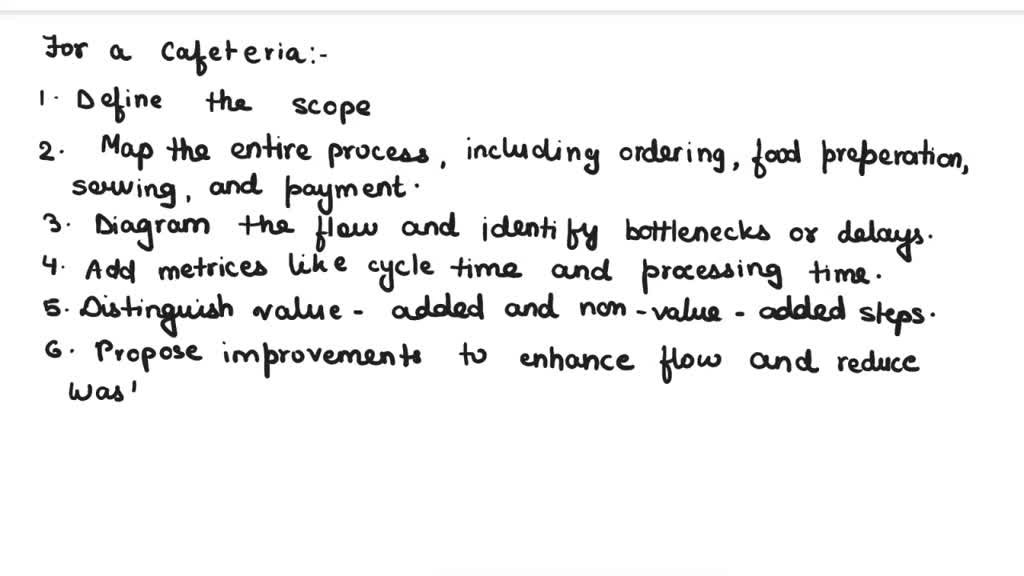 For a Cafeteria:-
1. Define the scope
2. Map the entire process, including ordering, food preperation,
serving, and payment.
3. Diagram the flow and identify bottlenecks or delays.
4. Add metrices like cycle time and processing time.
5. Distinguish value - added and non - value - added steps.
6. Propose improvements to enhance flow and reduce
was